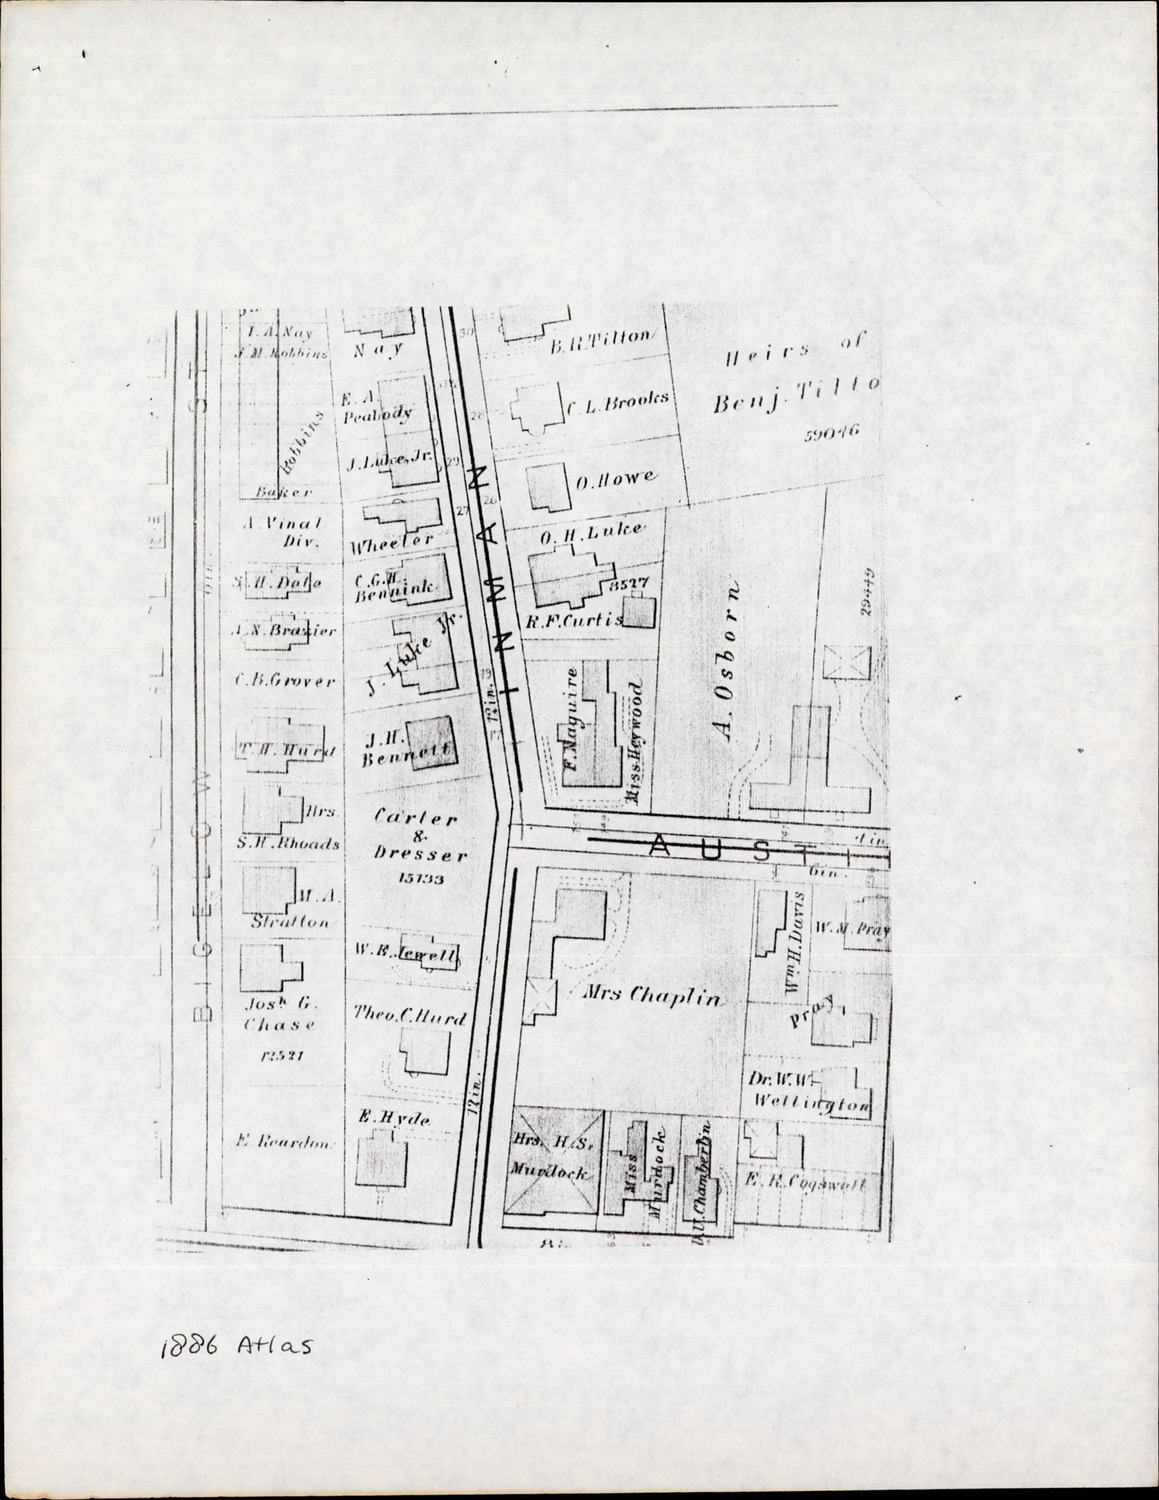 I. A. Nay
J. M. Robbins
Robbins
Baker
A. Vinal
Div.
S. H. Dole
A. N. Brazier
C. B. Grover
T. H. Hurd
Mrs.
S. H. Rhoads
M. A.
Stratton
Josh G.
Chase
12521
E. Reardon
BIGELOW
ST
Nay
E. A.
Peabody
J. Luke, Jr.
Wheeler
C. G. H.
Bennink
J. Luke Jr.
J. H.
Bennett
Carter
&
Dresser
15133
W. E. Jewell
Theo. C. Hurd
E. Hyde
30
28
29
26
27
INMAN
12in.
12in.
B. R. Tilton
C. L. Brooks
O. Howe
O. H. Luke
8527
R. F. Curtis
F. Maguire
Miss Heywood
Heirs of
Benj. Tilto
59046
A. Osborn
29449
AUSTI
4in
6in.
Mrs Chaplin
Wm H. Davis
W. M. Pray
Pray
Dr. W. W.
Wellington
Mrs. H. S.
Murdock
Miss
Murdock
D. U. Chamberlin
E. R. Cogswell
8i
1886 Atlas